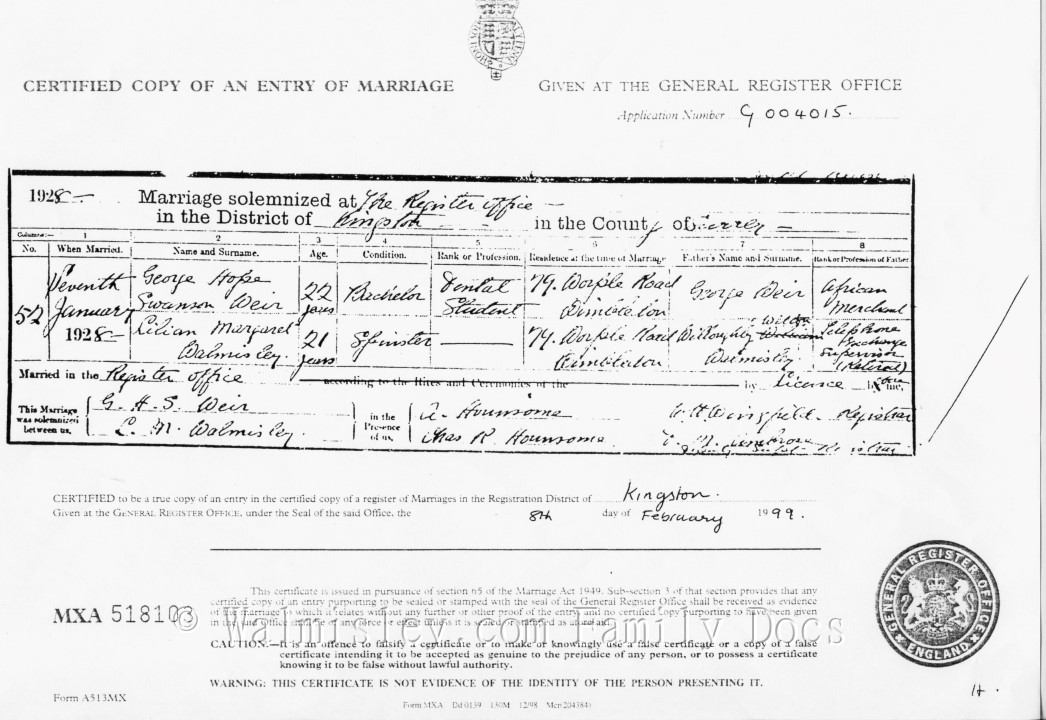 CERTIFIED COPY OF AN ENTRY OF MARRIAGE
GIVEN AT THE GENERAL REGISTER OFFICE
Application Number G 004015.
1928 Marriage solemnized at The Register office
in the District of Kingston in the County of Surrey
Columns:— 1 2 3 4 5 6 7 8
No. When Married. Name and Surname. Age. Condition. Rank or Profession. Residence at the time of Marriage Father's Name and Surname. Rank or Profession of Father.
52 Seventh January 1928
George Hope Swanson Weir 22 years Bachelor Dental Student 79. Worple Road Wimbledon George Weir African Merchant
Lilian Margaret Walmisley. 21 years Spinster 79. Worple Road Wimbledon Willoughby Walmisley Telephone Exchange Supervisor (Retired)
Married in the Register office according to the Rites and Ceremonies of the by licence by me,
This Marriage was solemnized between us, G. H. S. Weir
L. M. Walmisley.
in the Presence of us, A. Hounsome
Chas R. Hounsome
W H Wingfield. Registrar
CERTIFIED to be a true copy of an entry in the certified copy of a register of Marriages in the Registration District of Kingston.
Given at the GENERAL REGISTER OFFICE, under the Seal of the said Office, the 8th day of February 1999.
MXA 518103
This certificate is issued in pursuance of section 65 of the Marriage Act 1949. Sub-section 3 of that section provides that any
certified copy of an entry purporting to be sealed or stamped with the seal of the General Register Office shall be received as evidence
of the marriage to which it relates without any further or other proof of the entry, and no certified copy purporting to have been given
in the said Office shall be of any force or effect unless it is sealed or stamped as aforesaid.
© Walmisley.com Family Docs
CAUTION:—It is an offence to falsify a certificate or to make or knowingly use a false certificate or a copy of a false
certificate intending it to be accepted as genuine to the prejudice of any person, or to possess a certificate
knowing it to be false without lawful authority.
WARNING: THIS CERTIFICATE IS NOT EVIDENCE OF THE IDENTITY OF THE PERSON PRESENTING IT.
GENERAL REGISTER OFFICE
ENGLAND
Form A513MX
Form MXA Dd 0139 130M 12/98